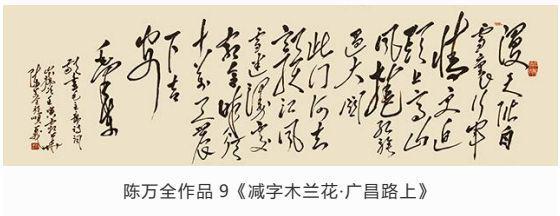 漫天皆白
雪裏行军
情更迫
頭上高山
风捲红旗
过大関
此行何去
贛江风
雪迷漫處
命令昨颁
十万工农
下吉
安
毛泽东
敬书毛主席诗词
陈万全作品 9《减字木兰花·广昌路上》